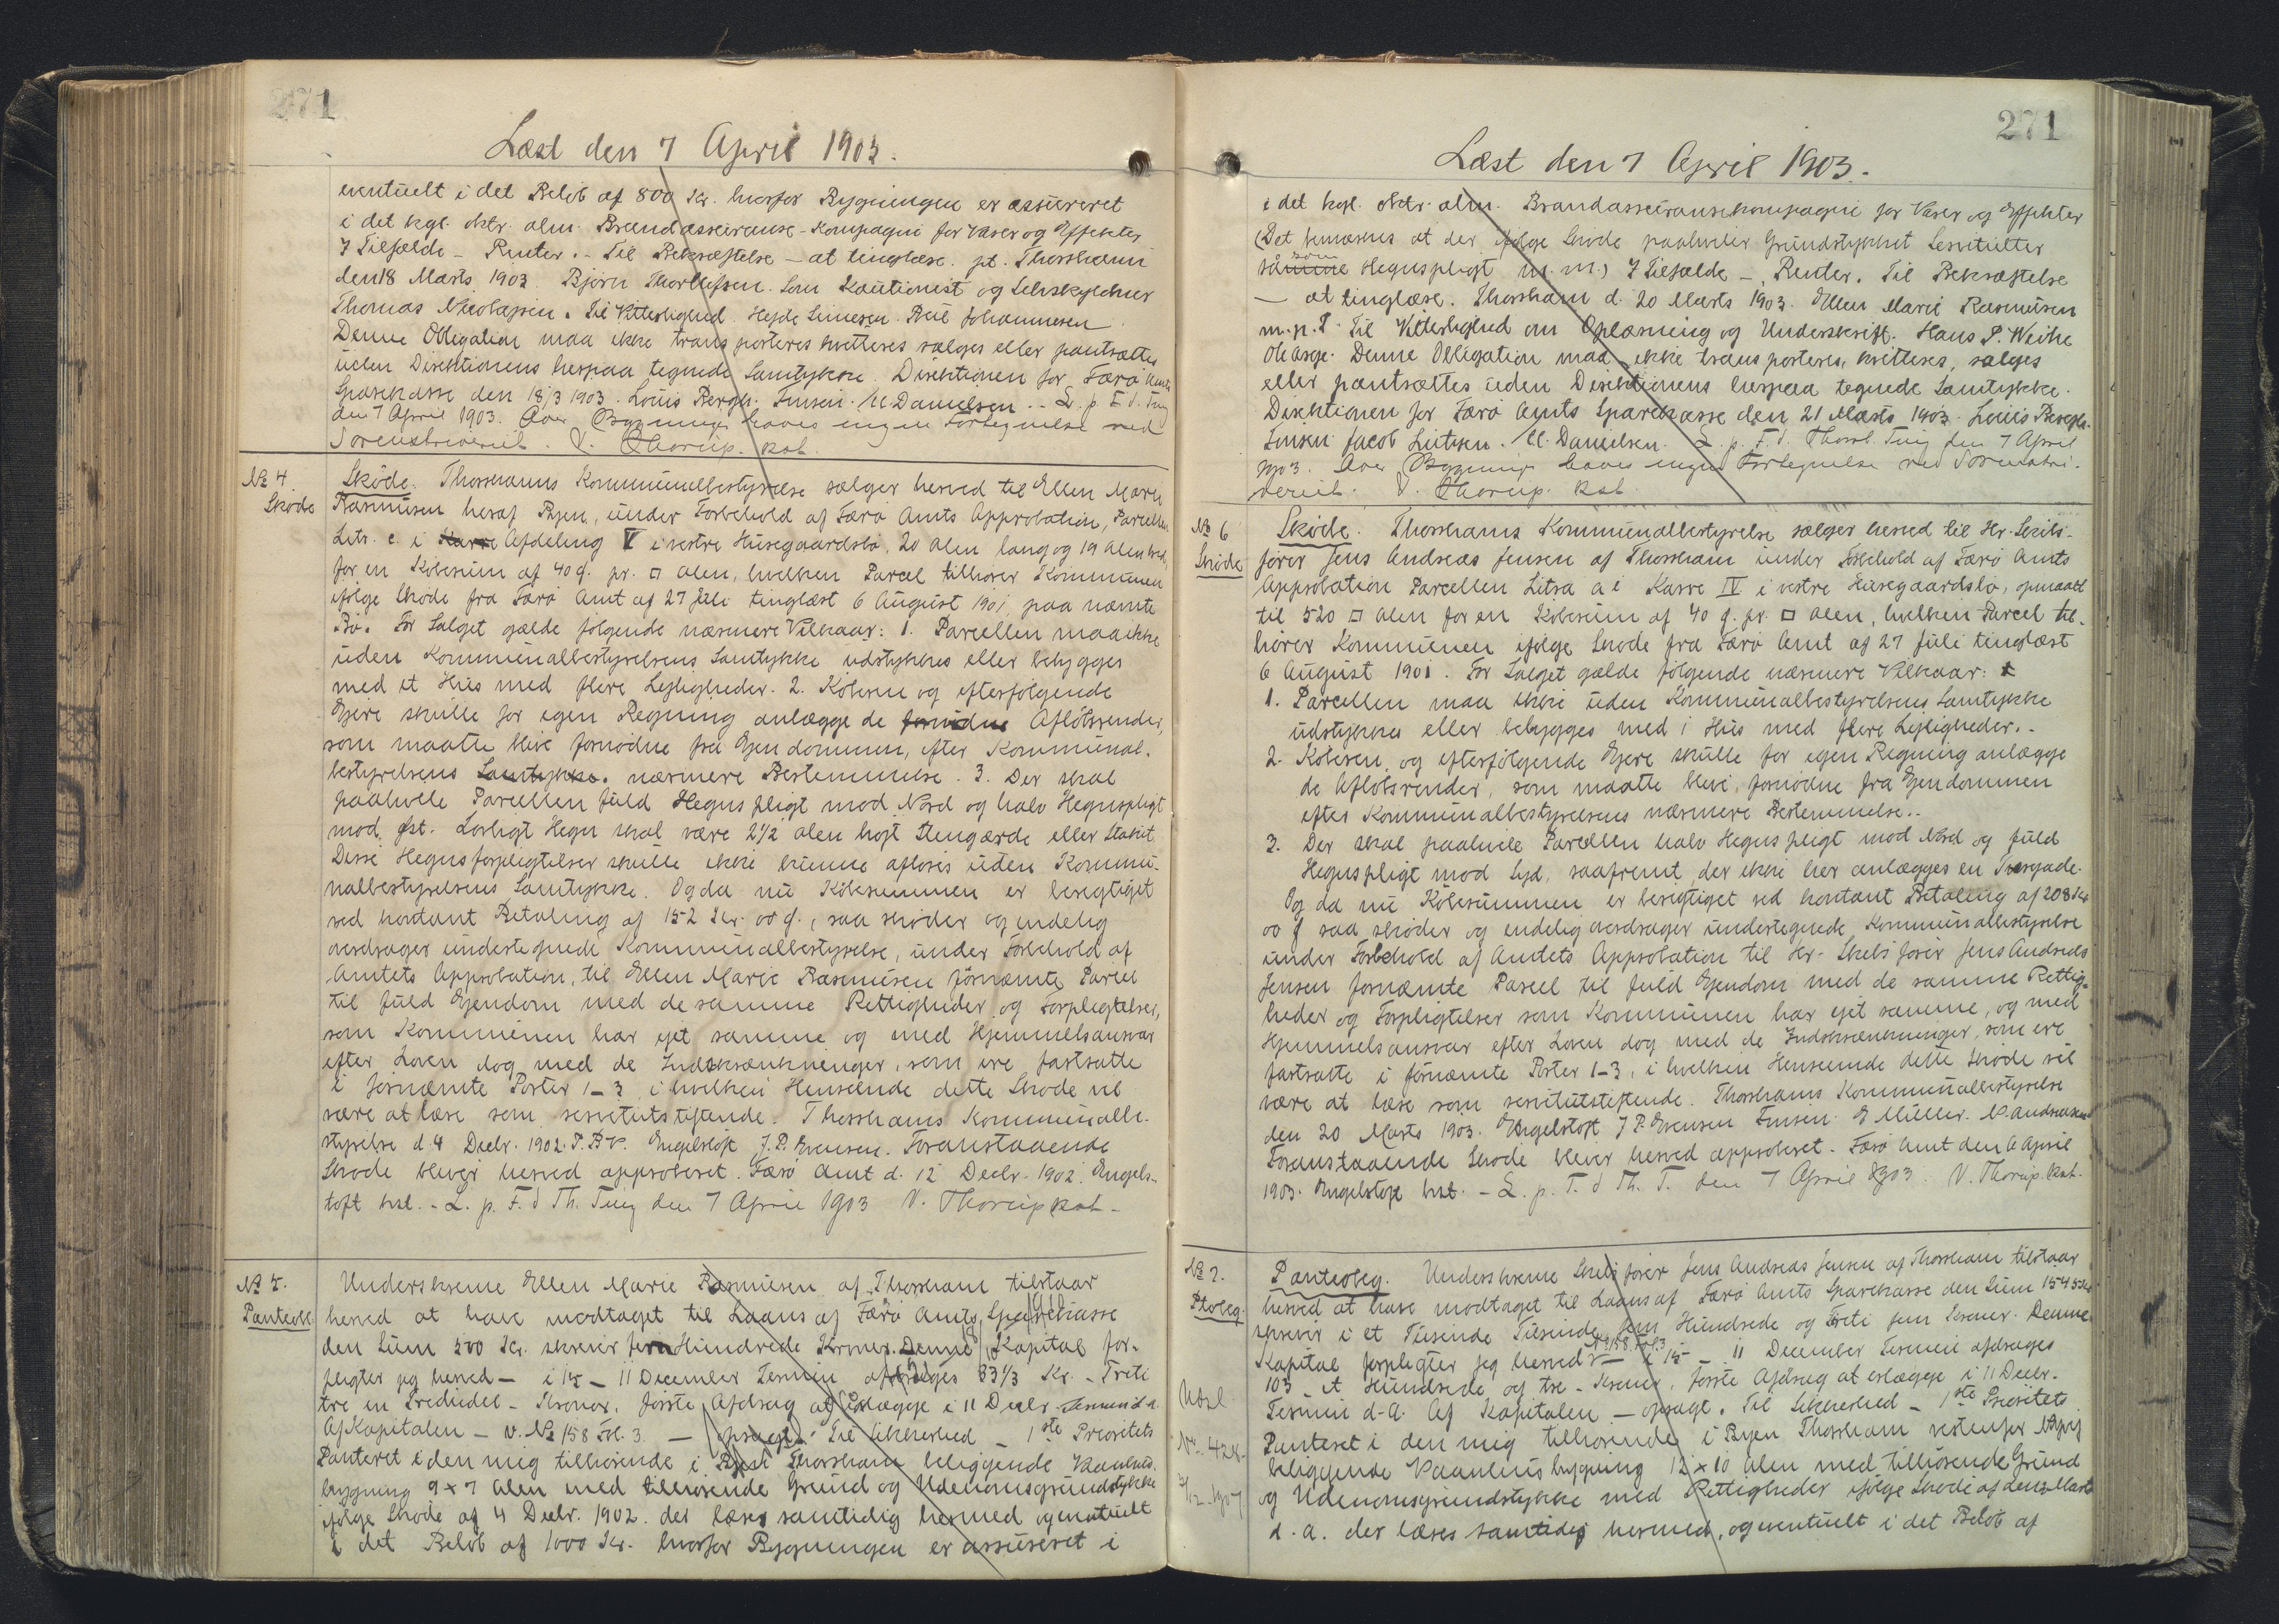 271
Læst den 7 April 1903.
eventuelt i det Beløb af 800 Kr. hvorfor Bygningen er assureret
i det kgl. oktr. alm. Brandassurance-Kompagni for Varer og Effekter
I Tilfælde – Renter. – Til Bekræftelse – at tinglæse. pt. Thorshavn
den 18 Marts 1903. Bjørn Thorleifsen. Som Kautionist og Selvskyldner
Thomas Nicolajsen. Til Vitterlighed Johannesen
Denne Obligation maa ikke transporteres kvitteres sælges eller pantsættes
uden Direktionens herpaa tegnede Samtykke. Direktionen for Færø Amts
Sparekasse den 18/3 1903. Louis Bergh. Finsen. M. Danielsen. – L. p. F. d. Ting
den 7 April 1903. Over Bygninger haves ingen Fortegnelse ved
Sorenskriveriet. V. Thorup. kst.
No 4.
Skøde
Skøde. Thorshavns Kommunalbestyrelse sælger herved til Ellen Marie
Rasmusen heraf Byen, under Forbehold af Færø Amts Approbation, Parcellen
Litr. c. i Karre Afdeling V i vestre Husegaardsbø, 20 Alen lang og 19 Alen bred,
for en Købesum af 40 ø. pr. □ Alen, hvilken Parcel tilhører Kommunen
ifølge Skøde fra Færø Amt af 27 Juli tinglæst 6 August 1901, paa nævnte
Bø. For Salget gælde følgende nærmere Vilkaar: 1. Parcellen maa ikke
uden Kommunalbestyrelsens Samtykke udstykkes eller bebygges
med et Hus med flere Lejligheder. 2. Køberne og efterfølgende
Ejere skulle for egen Regning anlægge de fornødne Afløbsrender,
som maatte blive fornødne fra Ejendommen, efter Kommunal-
bestyrelsens Samtykke. nærmere Bestemmelse. 3. Der skal
paahvile Parcellen fuld Hegnspligt mod Nord og halv Hegnspligt
mod Øst. Lovligt Hegn skal være 2 1/2 Alen højt Stengærde eller Stakit
Disse Hegnsforpligtelser skulle ikke kunne afløses uden Kommu-
nalbestyrelsens Samtykke. Og da nu Købesummen er berigtiget
ved kontant Betaling af 152 Kr. 00 ø., saa skøder og endelig
overdrager undertegnede Kommunalbestyrelse, under Forbehold af
Amtets Approbation, til Ellen Marie Rasmusen fornævnte Parcel
til fuld Ejendom med de samme Rettigheder og Forpligtelser,
som Kommunen har ejet samme og med Hjemmelsansvar
efter Loven dog med de Indskrænkninger, som ere fastsatte
i fornævnte Poster 1–3, i hvilken Henseende dette Skøde vil
være at læse som servitutstiftende. Thorshavns Kommunalbe-
styrelse d 4 Decbr. 1902. P. B. V. Engelstoft J. P. Evensen. Foranstaaende
Skøde bliver herved approberet. Færø Amt d. 12 Decbr. 1902. Engels-
toft kst. – L. p. F. d Th. Ting den 7 April 1903 V. Thorup kst. –
No 5.
Panteobl.
Underskrevne Ellen Marie Rasmusen af Thorshavn tilstaar
herved at have modtaget til Laans af Færø Amts Sparekasse
den Sum 500 Kr. skriver fem Hundrede Kroner. Denne Kapital for-
pligter jeg herved – i 15 – 11 December Termin afdrages 33 1/3 Kr. – Treti
tre en Trediedel – Kroner, første Afdrag at erlægge i 11 Decbr. Termin d. a.
Af Kapitalen – v. No 158 Fol. 3 – opsagt. Til Sikkerhed – 1ste Prioritets
Panteret i den mig tilhørende i Byen Thorshavn beliggende Vaanhus-
bygning 9 x 7 Alen med tilhørende Grund og Udenomsgrundstykke
ifølge Skøde af 4 Decbr. 1902. der læses samtidig hermed og eventuelt
i det Beløb af 1000 Kr. hvorfor Bygningen er assureret i
271
Læst den 7 April 1903.
i det kgl. oktr. alm. Brandassurancekompagni for Varer og Effekter
(Det bemærkes at der ifølge Skøde paahviler Grundstykket Servitutter
som
såsom Hegnspligt m. m.) I Tilfælde – Renter. Til Bekræftelse
– at tinglæse. Thorshavn d. 20 Marts 1903. Ellen Marie Rasmusen
m. p. P. Til Vitterlighed om Oplæsning og Underskrift. Hans P. Weihe
Denne Obligation maa ikke transporteres, kvitteres, sælges
eller pantsættes uden Direktionens herpaa tegnede Samtykke.
Direktionen for Færø Amts Sparekasse den 21 Marts 1903. Louis Bergh.
Finsen Jacob Lützen. M. Danielsen. L. p. F. d. Thorsh. Ting den 7 April
1903. Over Bygning haves ingen Fortegnelse ved Sorenskri-
veriet. V. Thorup. kst.
No 6
Skøde
Skøde. Thorshavns Kommunalbestyrelse sælger herved til Hr. Skibs-
fører Jens Andreas Jensen af Thorshavn under Forbehold af Færø Amts
Approbation Parcellen Litra a i Karre IV i vestre Husegaardsbø, opmaalt
til 520 □ Alen for en Købesum af 40 ø. pr. □ Alen, hvilken Parcel til-
hører Kommunen ifølge Skøde fra Færø Amt af 27 Juli tinglæst
6 August 1901. For Salget gælde følgende nærmere Vilkaar:
1. Parcellen maa ikke uden Kommunalbestyrelsens Samtykke
udstykkes eller bebygges med 1 Hus med flere Lejligheder. –
2. Køberen og efterfølgende Ejere skulle for egen Regning anlægge
de Afløbsrender, som maatte blive fornødne fra Ejendommen
efter Kommunalbestyrelsens nærmere Bestemmelse. .
3. Der skal paahvile Parcellen halv Hegnspligt mod Nord og fuld
Hegnspligt mod Syd, saafremt der ikke her anlægges en Tværgade.
Og da nu Købesummen er berigtiget ved kontant Betaling af 208 Kr
00 ø saa skøder og endelig overdrager undertegnede Kommunalbestyrelse
under Forbehold af Amtets Approbation til Hr. Skibsfører Jens Andreas
Jensen fornævnte Parcel til fuld Ejendom med de samme Rettig-
heder og Forpligtelser som Kommunen har ejet samme, og med
Hjemmelsansvar efter Loven dog med de Indskrænkninger, som ere
fastsatte i fornævnte Poster 1–3, i hvilken Henseende dette Skøde vil
være at læse som servitutstiftende. Thorshavns Kommunalbestyrelse
den 20 Marts 1903. Engelstoft J. P. Evensen Finsen E Müller. N. Andreasen
Foranstaaende Skøde bliver herved approberet. Færø Amt den 6 April
1903. Engelstoft kst. – L. p. F. d Th. T. den 7 April 1903. V. Thorup. kst.
No 7.
Ptoblg.
Panteoblg. Underskrevne Skibsfører Jens Andreas Jensen af Thorshavn tilstaar
herved at have modtaget til Laans af Færø Amts Sparekasse den Sum 1545 Kr
skriver i et Tusinde fem Hundrede og Førti fem Kroner. Denne
No 158 Fol. 3
Kapital forpligter jeg herved v – i 15 – 11 December Termin afdrages
103 – et Hundrede og tre – Kroner, første Afdrag at erlægge i 11 Decbr.
Termin d. A. Af Kapitalen – opsagt. Til Sikkerhed – 1ste Prioritets
Udsl.
No 428
Panteret i den mig tilhørende i Byen Thorshavn vestenfor
beliggende Vaanhusbygning 12 x 10 Alen med tilhørende Grund
og Udenomsgrundstykke med Rettigheder ifølge Skøde af den 20 Marts
d. a. der læses samtidig hermed, og eventuelt i det Beløb af